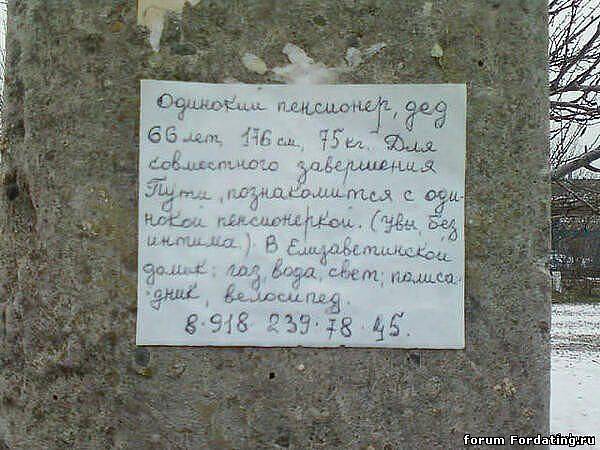 Одинокий пенсионер, дед
66 лет, 176 см, 75 кг. Для
совместного завершения
Пути, познакомится с оди-
нокой пенсионеркой. (Увы, без
интима). В Елизаветинской
домик: газ, вода, свет; палиса-
дник, велосипед.
8·918·239·78·45.
forum Fordating.ru